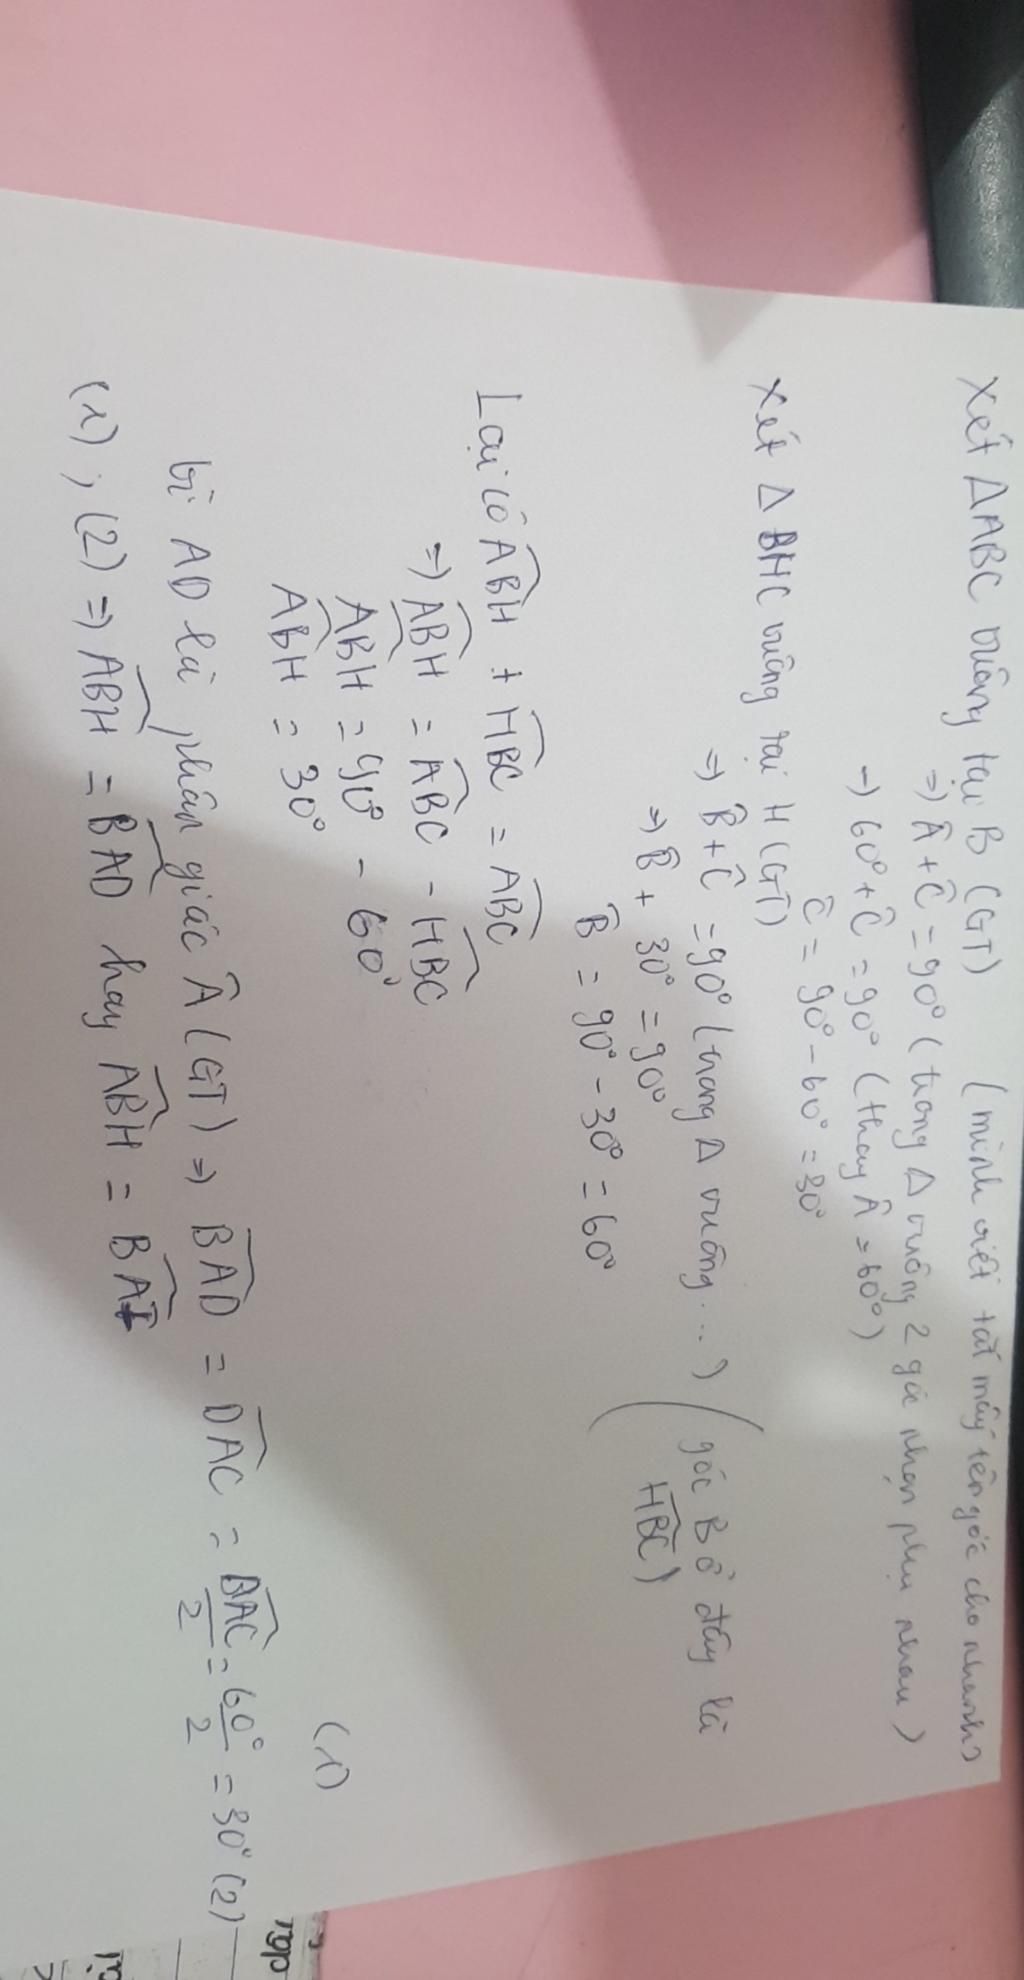 Xét ΔABC vuông tại B (GT) (mình viết tắt mấy tên góc cho nhanh)
=> Â + Ĉ = 90° (trong Δ vuông 2 góc nhọn phụ nhau)
-> 60° + Ĉ = 90° (thay Â = 60°)
Ĉ = 90° - 60° = 30°
Xét ΔBHC vuông tại H (GT)
=> B̂ + Ĉ = 90° (trong Δ vuông...) (góc B ở đây là
=> B̂ + 30° = 90° HBC)
B̂ = 90° - 30° = 60°
Lại có ABH + HBC = ABC
=> ABH = ABC - HBC
ABH = 90° - 60°
ABH = 30° (1)
Vì AD là phân giác Â (GT) => BAD = DAC = BAC/2 = 60°/2 = 30° (2)
(1), (2) => ABH = BAD hay ABH = BAI